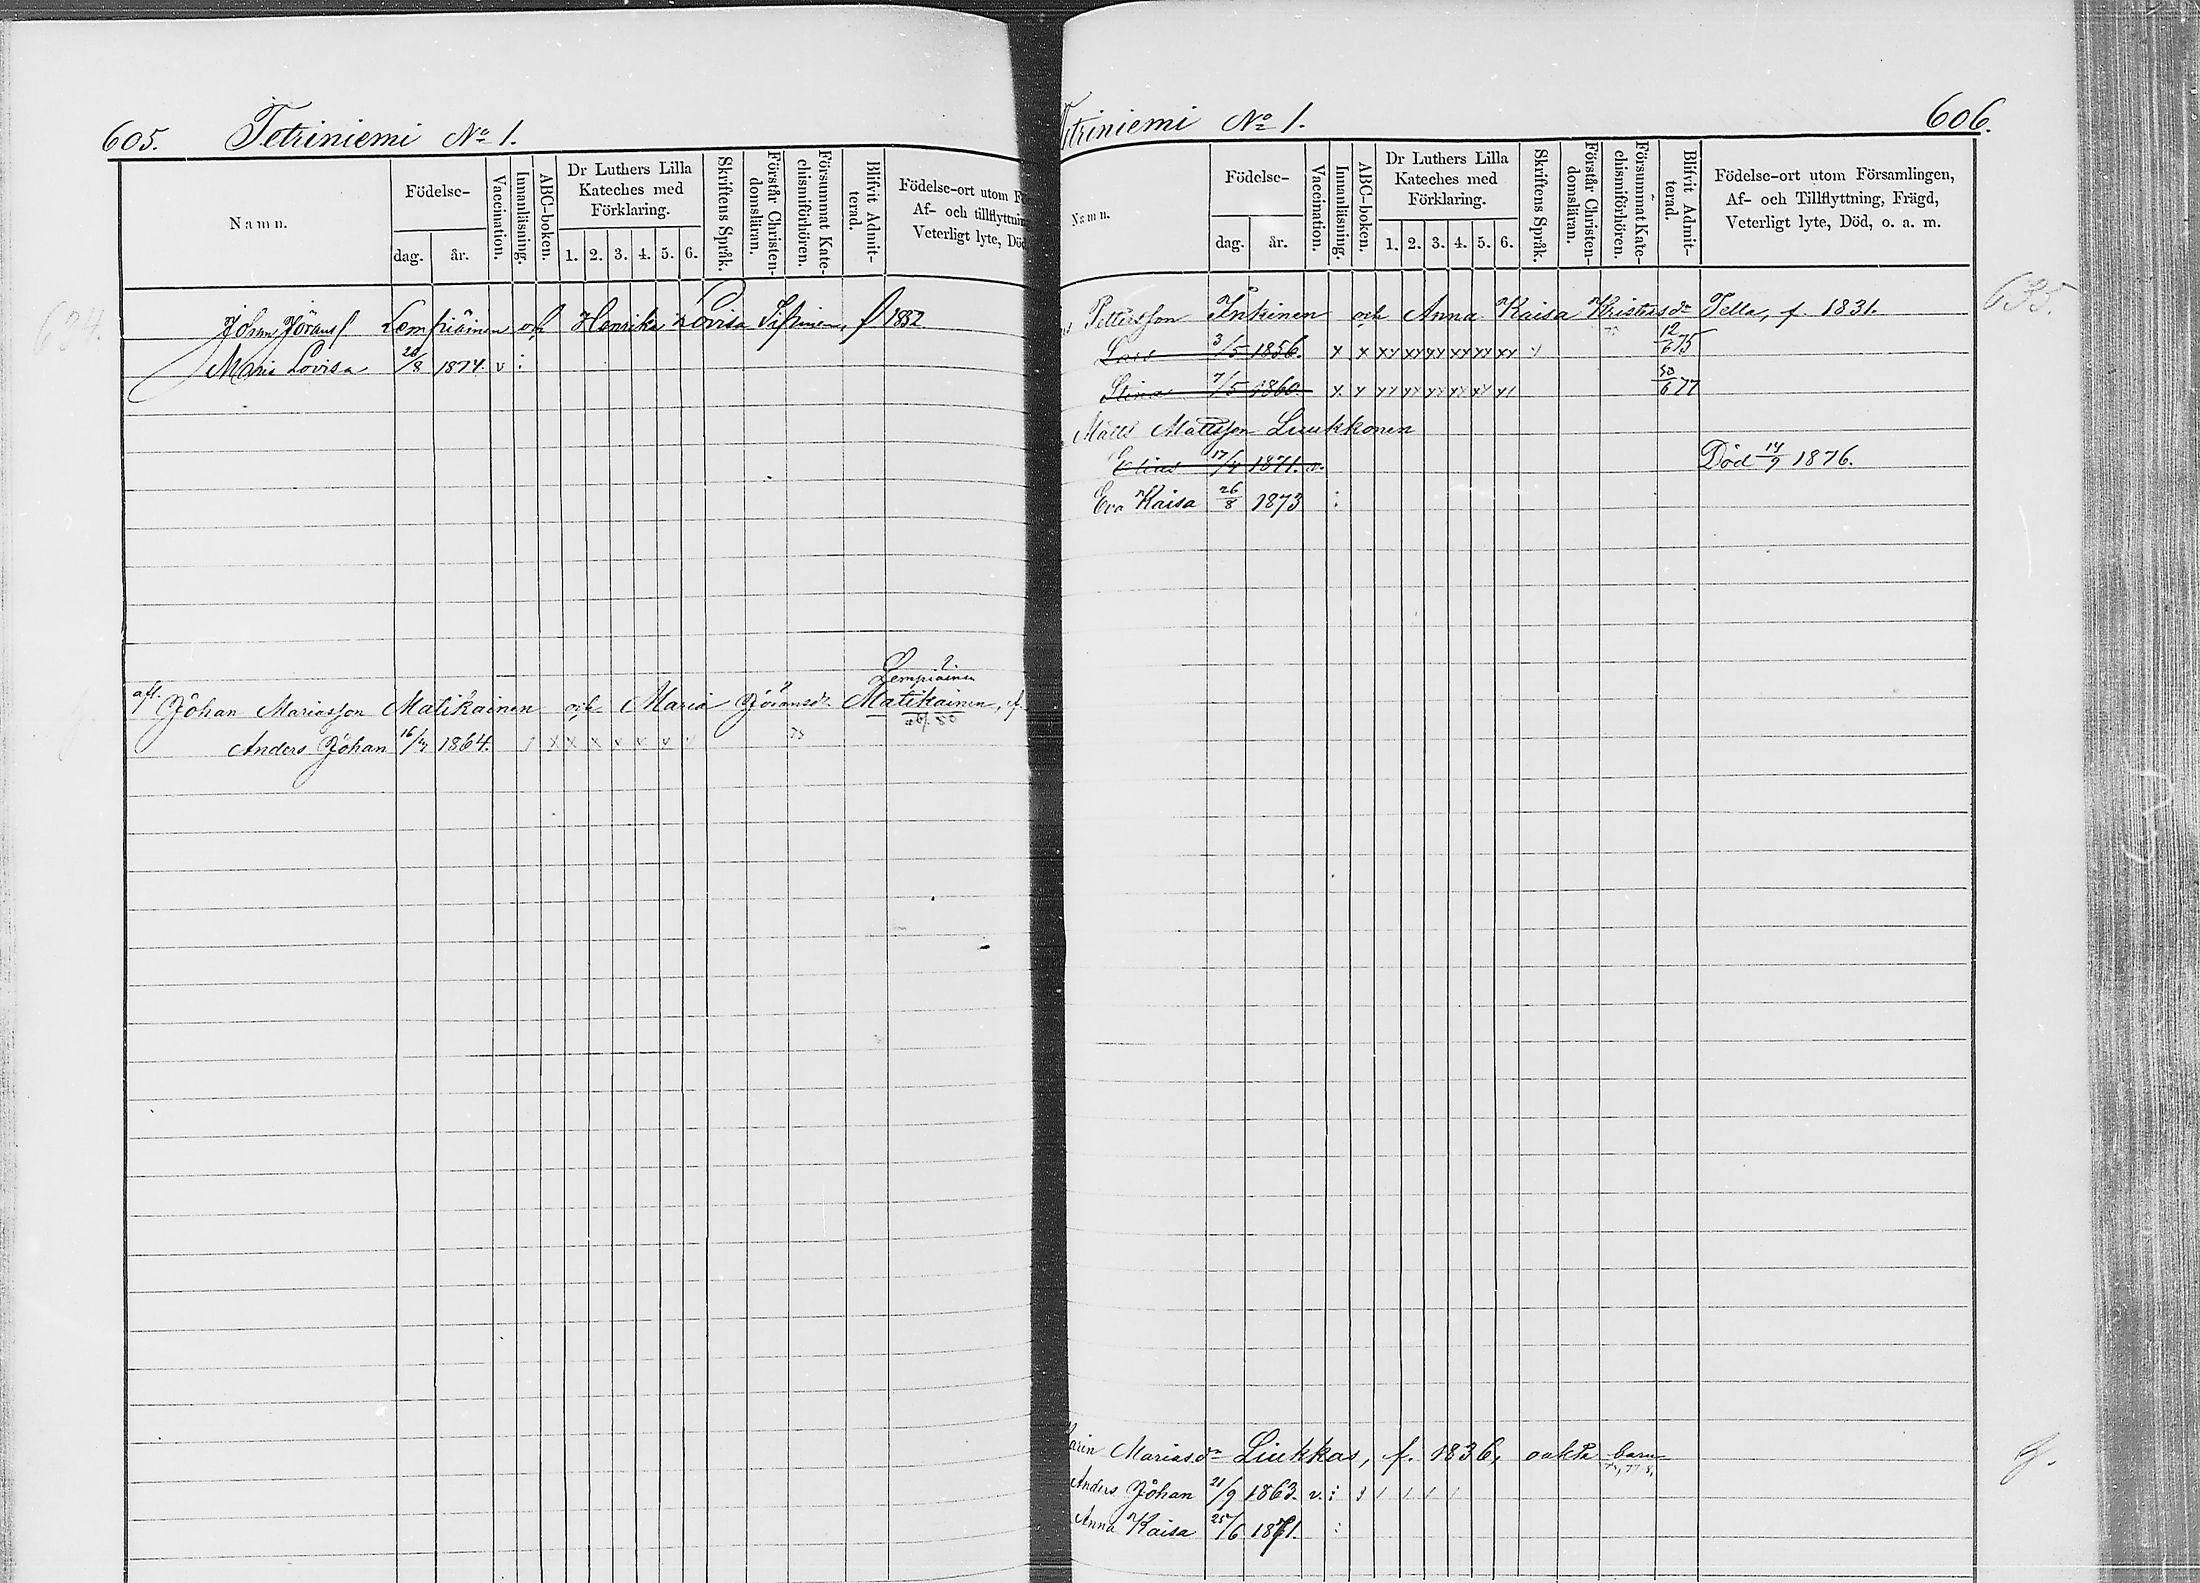 605. Tetriniemi No 1.
Namn.
Födelse-
dag. år.
Vaccination.
Innanläsning.
ABC-boken.
Dr Luthers Lilla Kateches med Förklaring.
1. 2. 3. 4. 5. 6.
Skriftens Språk.
Förstår Christendomsläran.
Försummat Katechismiförhören.
Blifvit Admitterad.
Födelse-ort utom
Af- och tillflyttnin
Veterligt lyte, Död
634.
Johan Jöransf Lempiäinen och Henrika Lovisa f 1852
Maria Lovisa 26/8 1874. v :
Lempiäinen
afl. Johan Mariasson Matikainen och Maria Jöransdr Matikainen, f.
Anders Johan 1864.
Tetriniemi No 1. 606.
Namn.
Födelse-
dag. år.
Vaccination.
Innanläsning.
ABC-boken.
Dr Luthers Lilla Kateches med Förklaring.
1. 2. 3. 4. 5. 6.
Skriftens Språk.
Förstår Christendomsläran.
Försummat Katechismiförhören.
Blifvit Admitterad.
Födelse-ort utom Församlingen,
Af- och Tillflyttning, Frägd,
Veterligt lyte, Död, o. a. m.
635.
Pettersson Inkinen och Anna Kaisa Kristersdr Tella, f. 1831.
Lars 3/5 1856. x x xx xx xx xx xx xx 12/6 75
Stina 7/5 1860. x x 30/6 77
Matts Mattsson Luukkonen
Elias 17/4 1871. v. Död 14/9 1876.
Eva Kaisa 26/8 1873 :
Karin Mariasdr Liukkas, f. 1836, oäkta barn
Anders Johan 21/9 1863. v. :
Anna Kaisa 25/6 1871. :